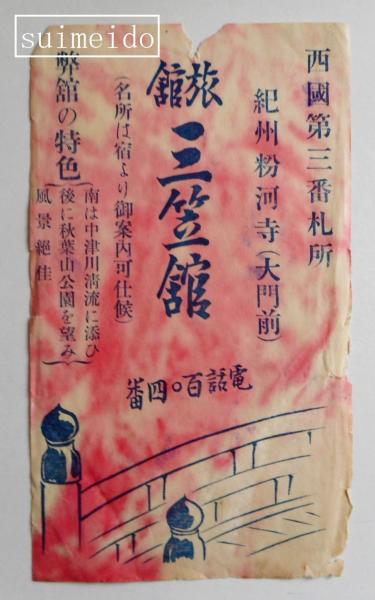 suimeido
西國第三番札所
紀州粉河寺(大門前)
旅館
三笠館
電話百〇四番
(名所は宿より御案内可仕候)
弊館の特色
南は中津川清流に添ひ
後に秋葉山公園を望み
風景絶佳